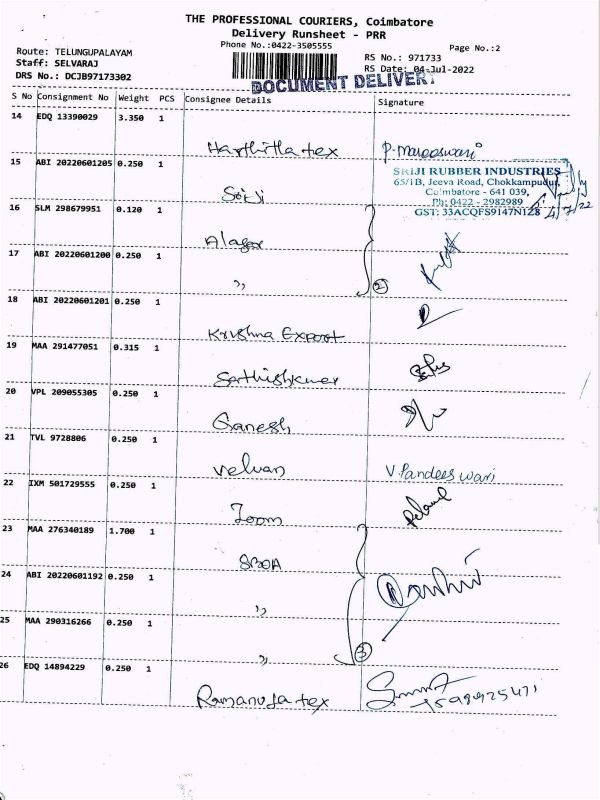 THE PROFESSIONAL COURIERS, Coimbatore
Delivery Runsheet - PRR
Phone No.:0422-3505555
Page No.:2
Route: TELUNGUPALAYAM
Staff: SELVARAJ
DRS No.: DCJB97173302
RS No.: 971733
RS Date: 04-Jul-2022
DOCUMENT DELIVERY
S No Consignment No Weight PCS Consignee Details Signature
14 EDQ 13390029 3.350 1
Harthitha tex P. Mareeswari
15 ABI 20220601205 0.250 1
SRIJI RUBBER INDUSTRIES
65/1B, Jeeva Road, Chokkampudur,
Coimbatore - 641 039,
Ph: 0422 - 2982989
GST: 33ACQFS9147N1Z8 4/7/22
Sriji
16 SLM 298679951 0.120 1
Alagar
17 ABI 20220601200 0.250 1
" 2
18 ABI 20220601201 0.250 1
Krishna Export
19 MAA 291477051 0.315 1
Sathishkumar
20 VPL 209055305 0.250 1
Ganesh
21 TVL 9728806 0.250 1
Velvan V. Pandeeswari
22 IXM 501729555 0.250 1
Zoom
23 MAA 276340189 1.700 1
SBOA
24 ABI 20220601192 0.250 1
"
25 MAA 290316266 0.250 1
" 3
26 EDQ 14894229 0.250 1
Ramanuja tex